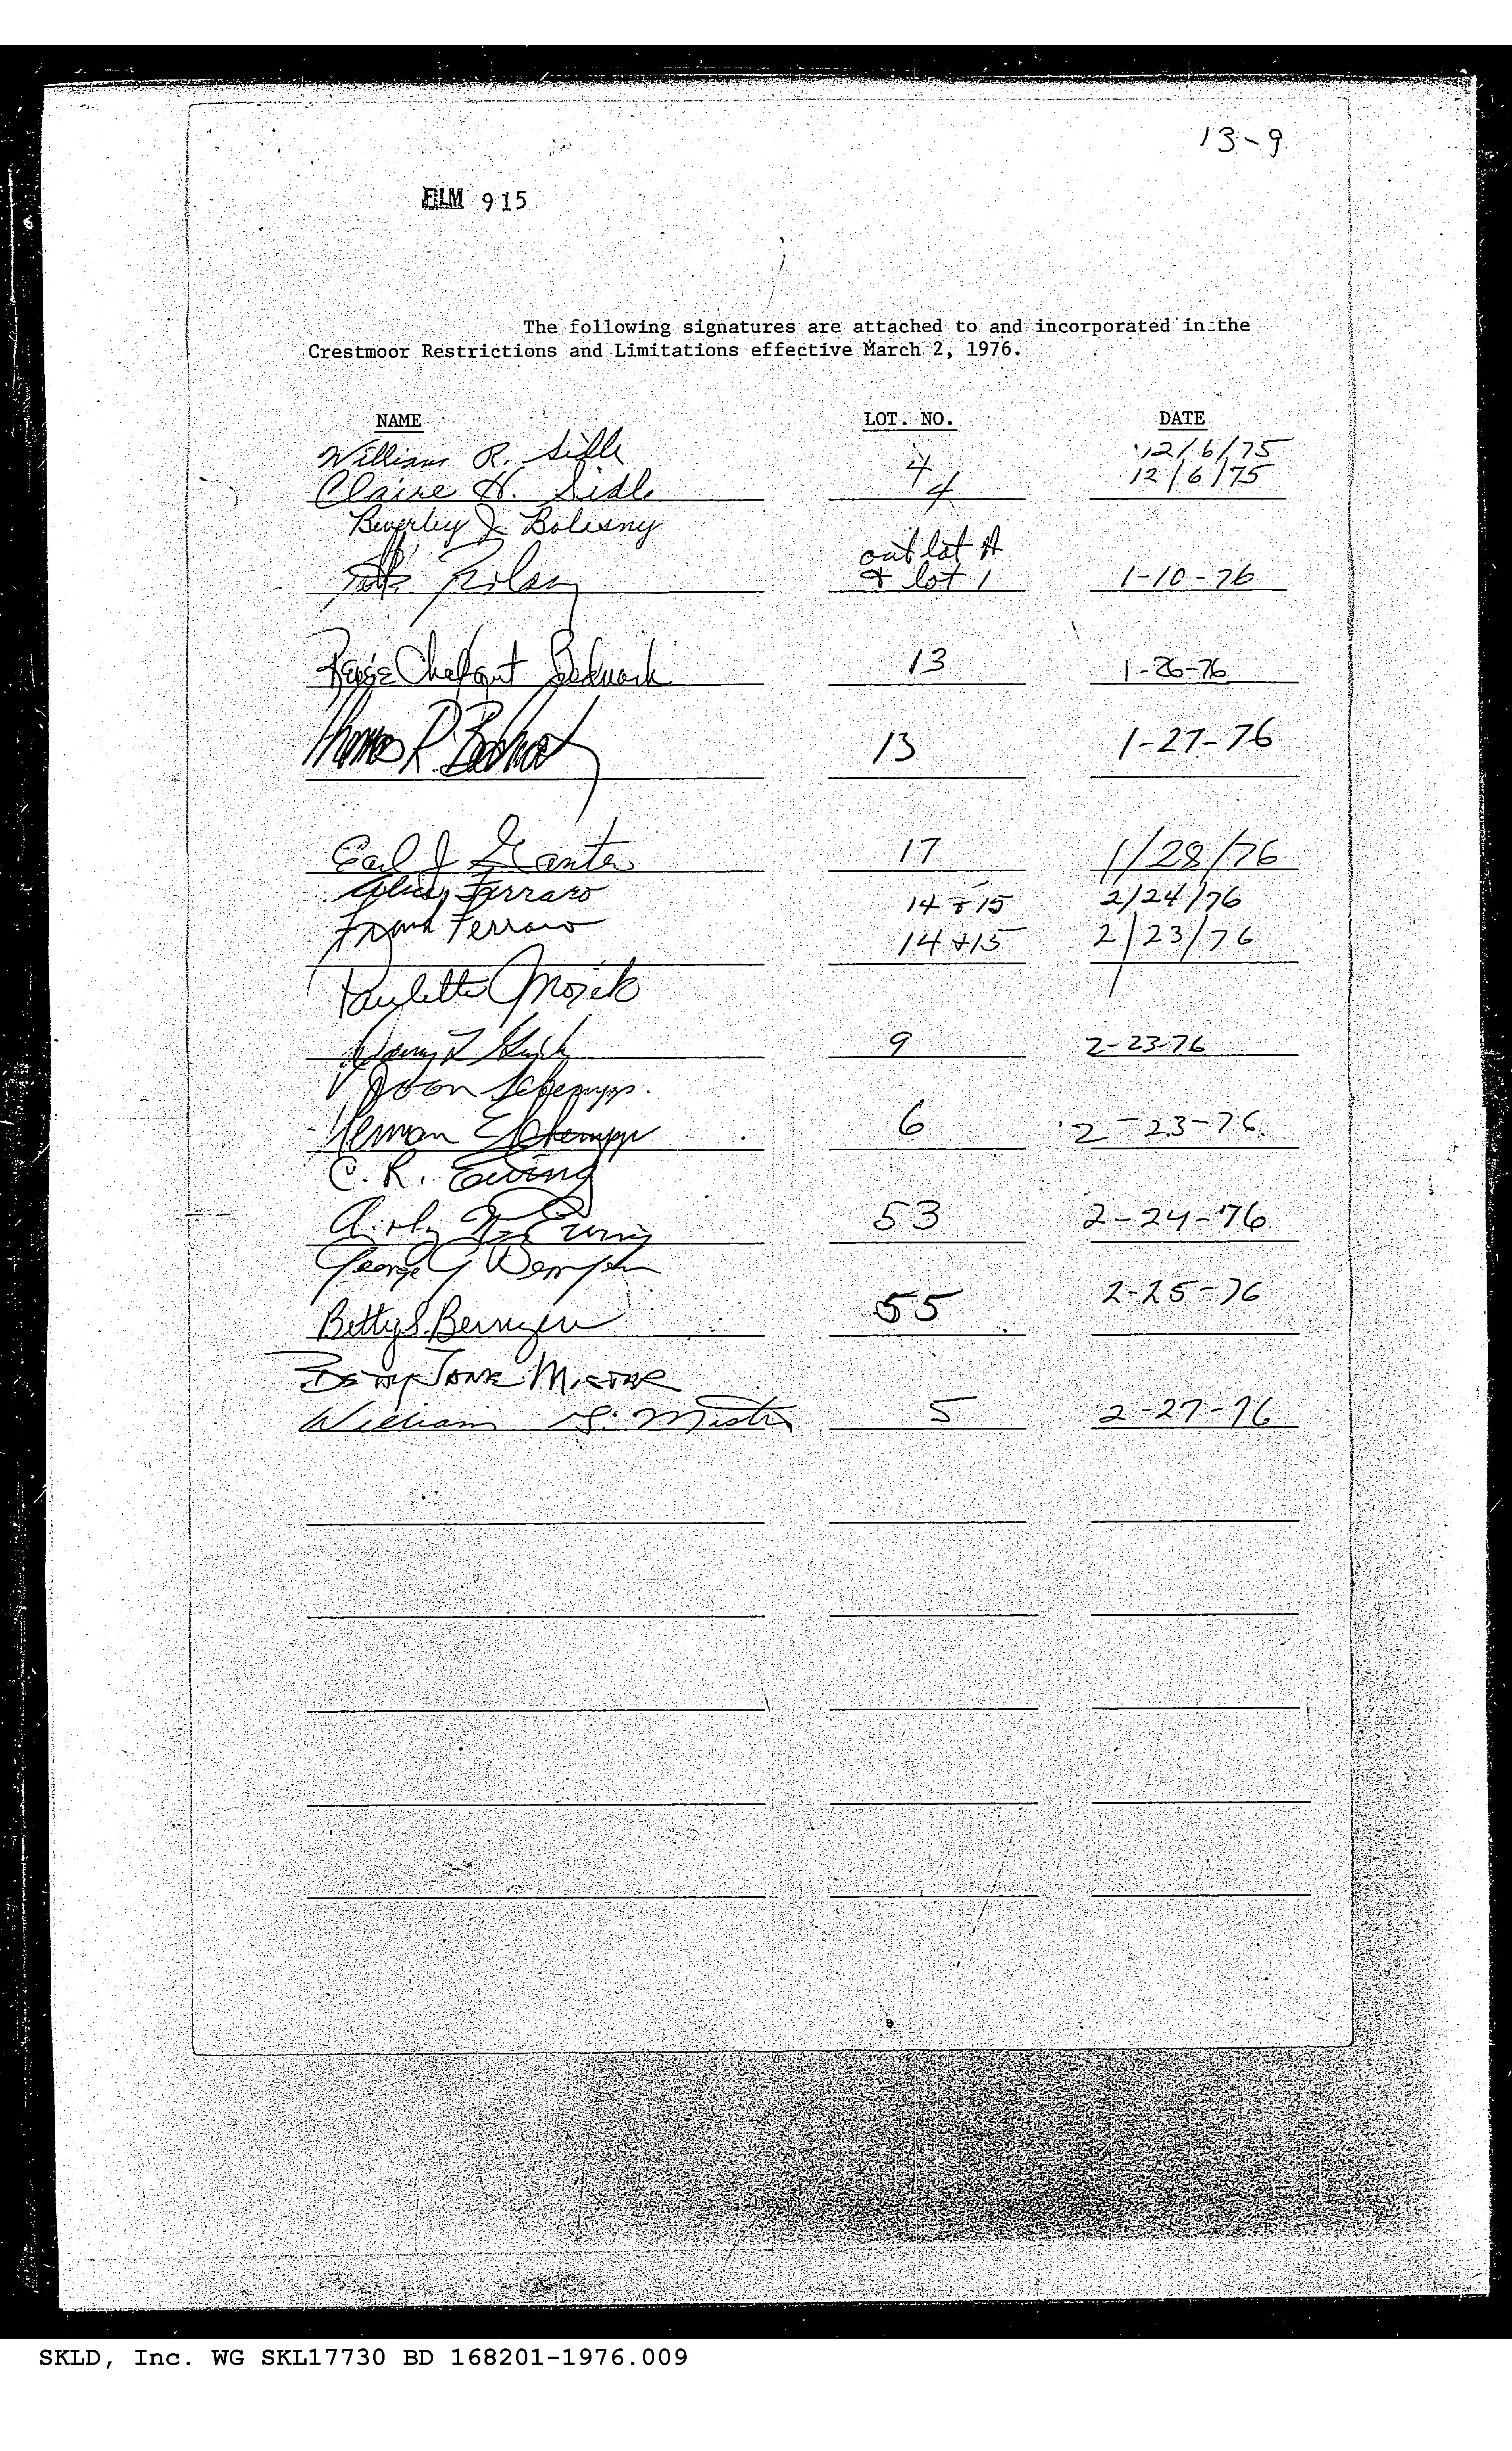 13-9
FILM 915
The following signatures are attached to and incorporated in the
Crestmoor Restrictions and Limitations effective March 2, 1976.
NAME LOT. NO. DATE
William R. Sidle 4 12/6/75
Claire H. Sidle 4 12/6/75
Beverley J. Bolesny
out lot A
& lot 1 1-10-76
13 1-26-76
Thomas R. 13 1-27-76
Earl J Ganter 17 1/28/76
Ferraro 14 & 15 2/24/76
Frank Ferraro 14 + 15 2/23/76
Paulette
9 2-23-76
Joan Schempp.
Herman Schempp 6 2-23-76
C. R. Ewing
Ewing 53 2-24-76
George G
Betty S. 55 2-25-76
Betty Jane Mister
William S. Mister 5 2-27-76
SKLD, Inc. WG SKL17730 BD 168201-1976.009